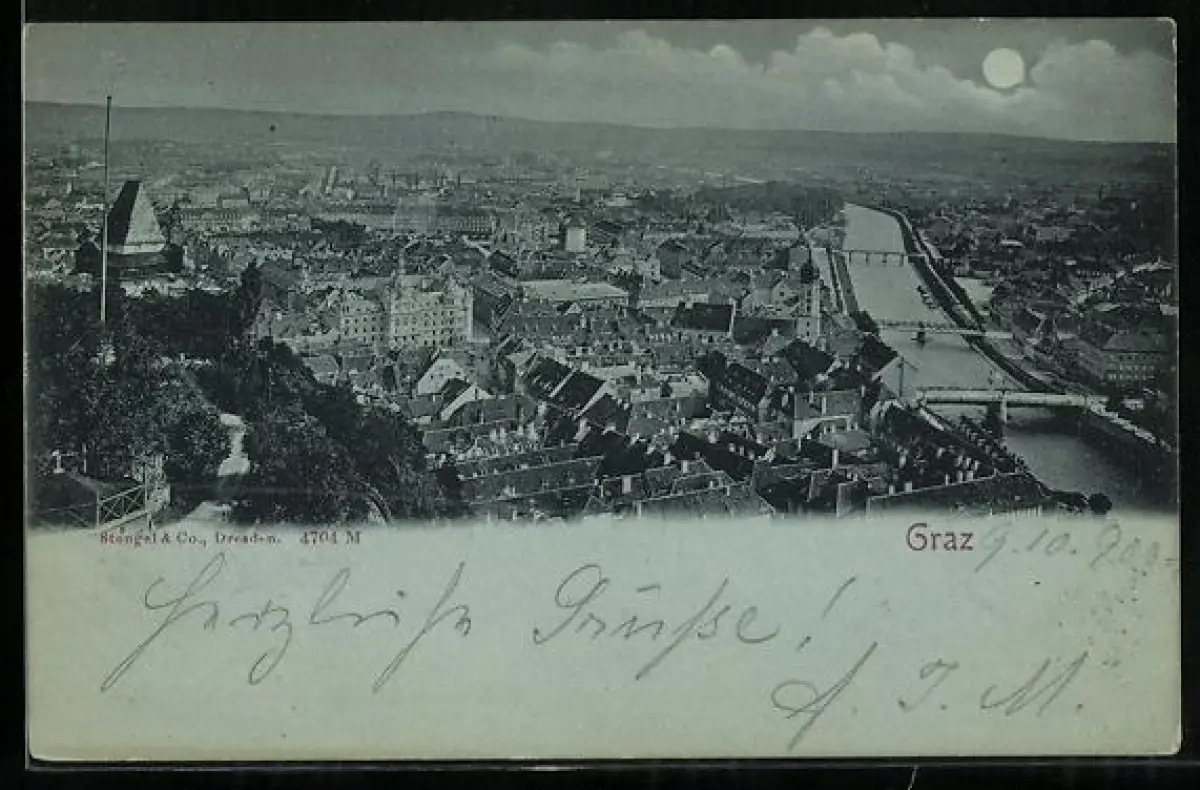 Stengel & Co., Dresden. 4704 M
Graz 9.10.900.
Herzliche Grüße!
A. J. M.